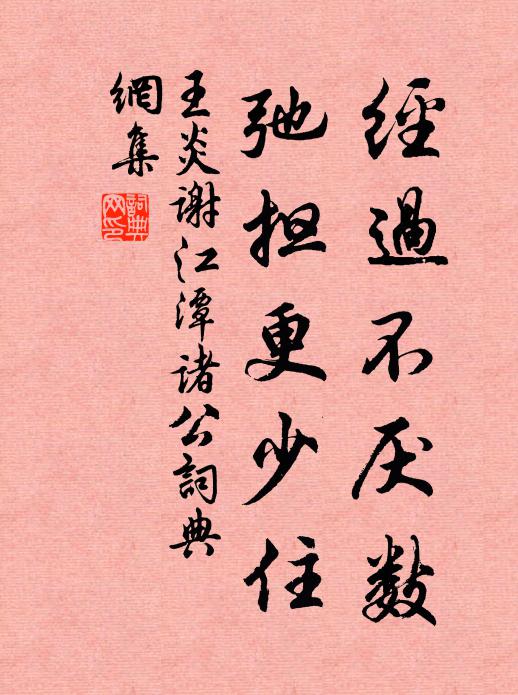 經過不厌数
弛担更少住
王炎谢江潭诸公詞典
網集
詞典网印